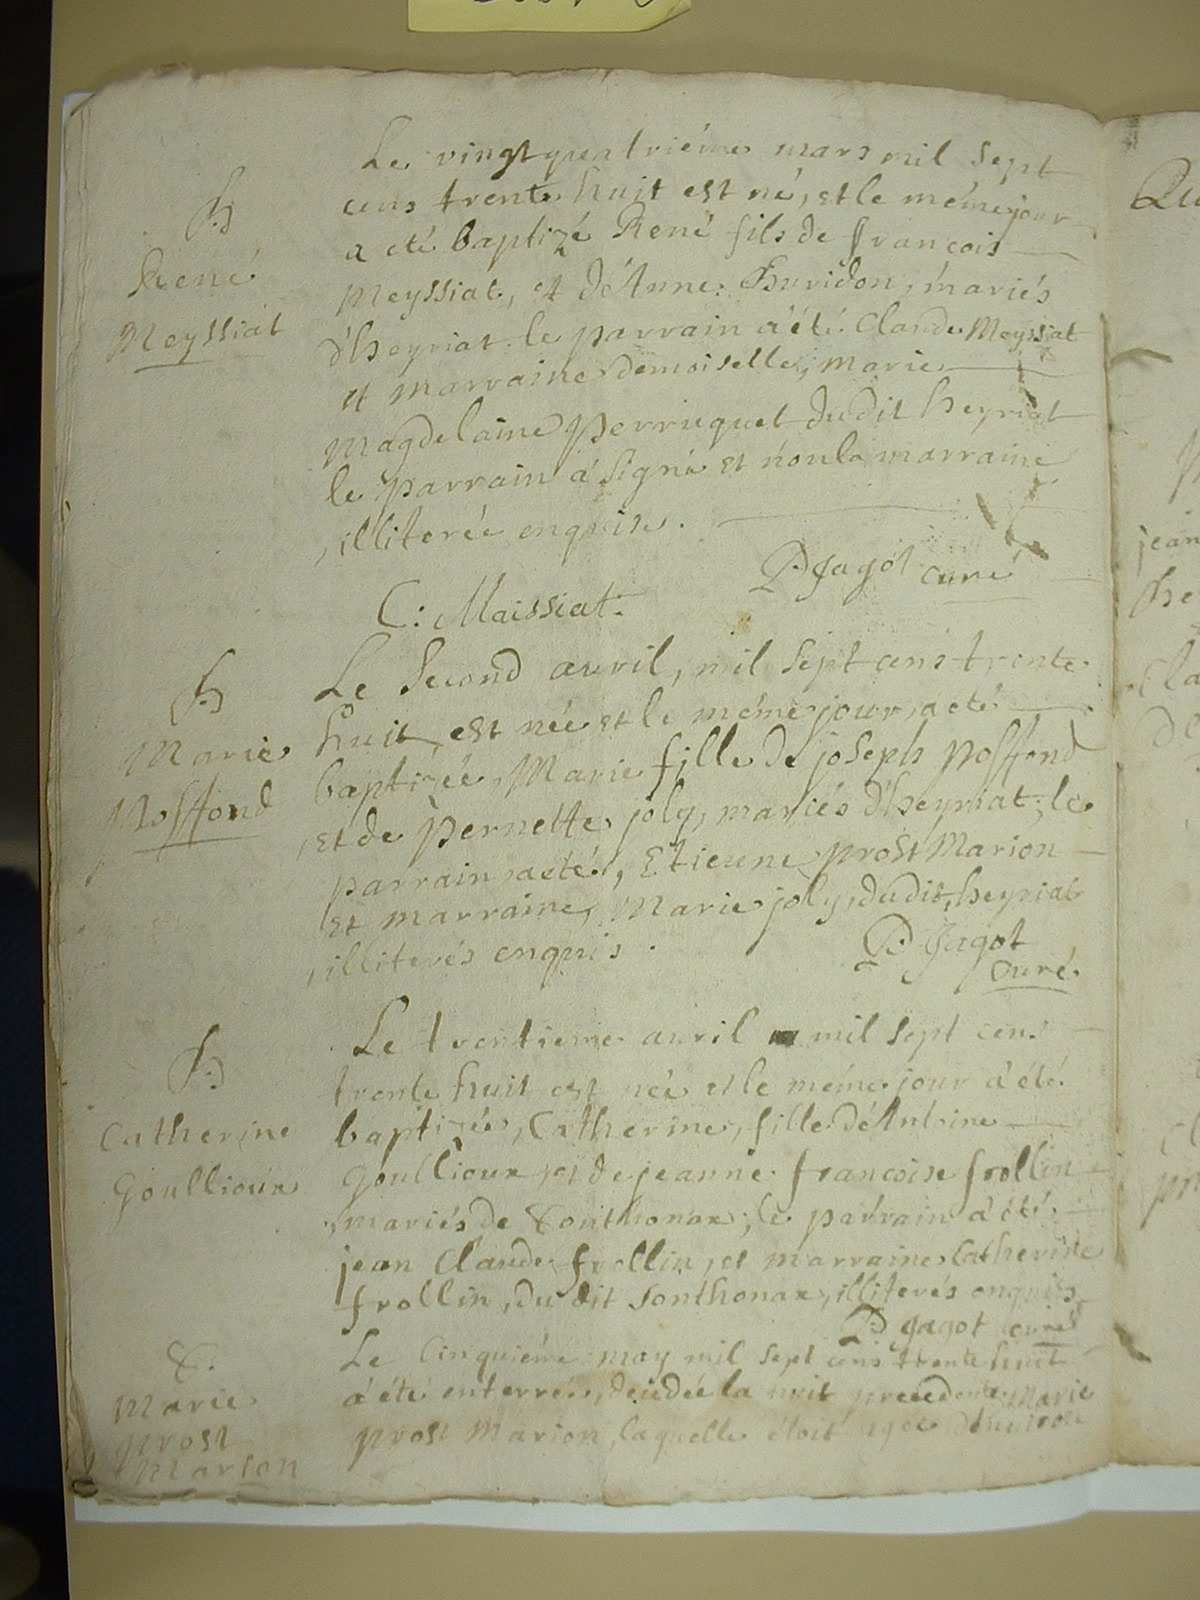 Le vingt quatriéme mars mil sept
cens trente huit est né, et le méme jour
a eté baptizé René fils de françois
h
René
Meyssiat
Meyssiat, et d'Anne Huridon, mariés
d'heyriat. le parrain a été Claude Meyssiat
et marraine demoiselle, marie
Magdelaine Perruquet dudit heyriat
le parrain á signé et non la marraine
illiterée enquise.
P. Jagot curé
C: Maissiat.
h
Marie
Poffond
Le Second avril, mil sept cens trente
huit, est née et le méme jour, a eté
baptizée, Marie fille de joseph Poffond
et de Pernette joly, mariés d'heyriat; le
parrain a eté, Etienne prost Marion
et marraine, Marie joly, dudit, heyriat
illiterés enquis.
P. Jagot
Curé
h
Catherine
Goullioux
Le trentieme avril mil sept cens
trente huit est née et le méme jour a été
baptizée, Catherine, fille d'Antoine
Goullioux et de jeanne françoise frollin
mariés de Sonthonax; le parrain a été
jean Claude frollin, et marraine Catherine
frollin, du dit Sonthonax, illiterés enquis
P Jagot curé
S.
Marie
prost
Marion
Le Cinquiéme may mil sept cens trente huit
a été enterrée, decedée la nuit precedente Marie
prost Marion, laquelle étoit agee d'environ